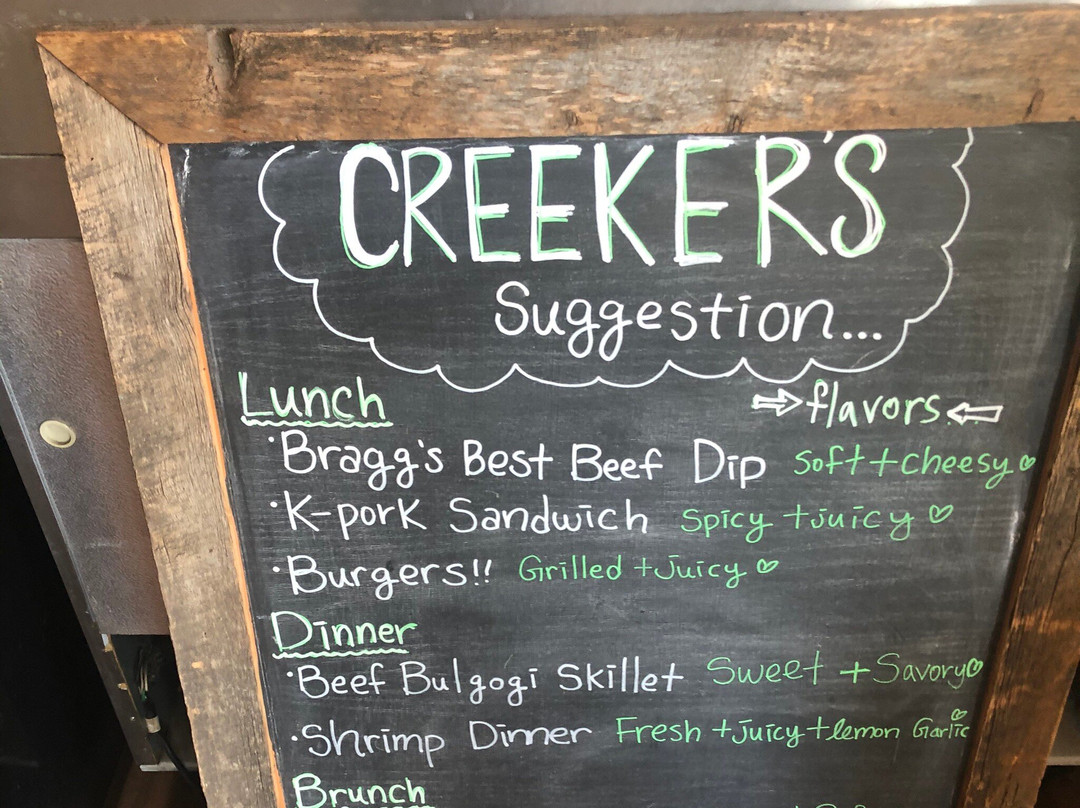 CREEKER'S
Suggestion...
Lunch ⇒flavors⇐
·Bragg's Best Beef Dip Soft+cheesy♡
·K-pork Sandwich Spicy +juicy ♡
·Burgers!! Grilled +Juicy ♡
Dinner
·Beef Bulgogi Skillet Sweet +Savory♡
·Shrimp Dinner Fresh +juicy+lemon Garlic♡
Brunch